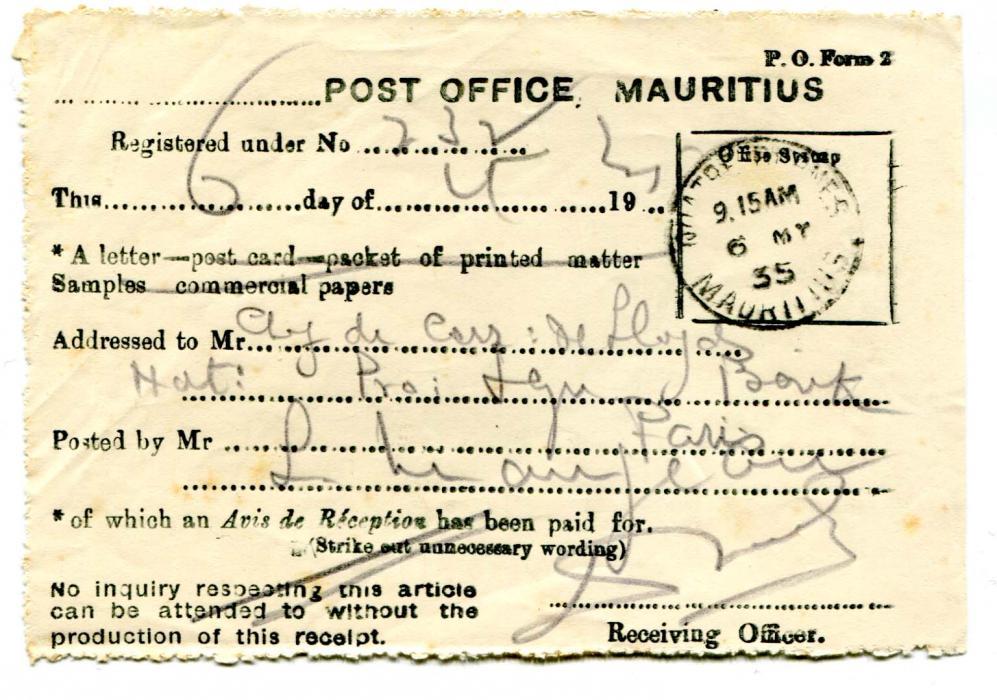 P. O. Form 2
POST OFFICE, MAURITIUS
Registered under No 232
Office Stamp
This 6 day of 19
9.15AM
6 MY
35
MAURITIUS
* A letter—post card—packet of printed matter
Samples commercial papers
Addressed to Mr. de Lloyds
Nat: Bank
Paris
Posted by Mr
* of which an Avis de Réception has been paid for.
(Strike out unnecessary wording)
No inquiry respecting this article
can be attended to without the
production of this receipt.
Receiving Officer.